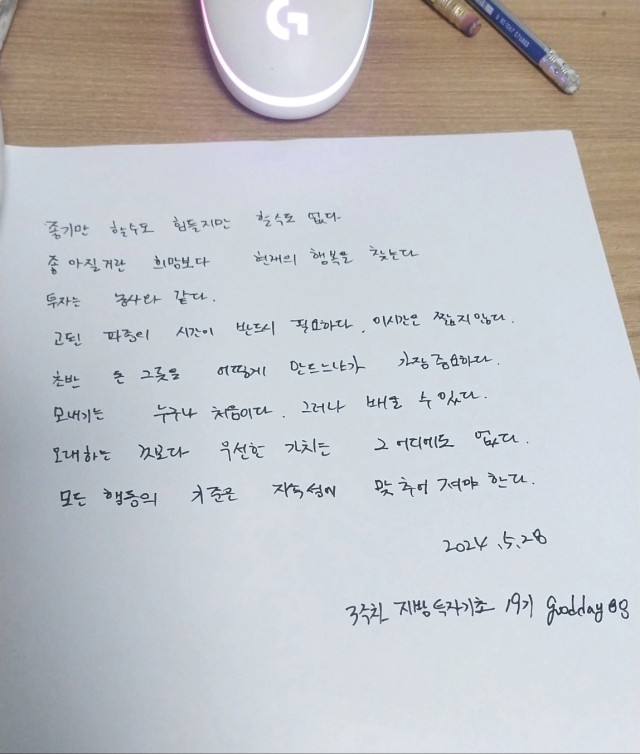 좋기만 할수도 힘들지만 할수도 없다.
좋아질거란 희망보다 현재의 행복을 찾는다
투자는 농사와 같다.
고된 파종의 시간이 반드시 필요하다. 이시간은 짧지않다.
초반 돈 그릇을 어떻게 만드느냐가 가장중요하다.
모내기는 누구나 처음이다. 그러나 배울 수 있다.
오래하는 것보다 우선한 가치는 그 어디에도 없다.
모든 행동의 기준은 지속성에 맞추어 져야 한다.
2024.5.28
3주차 지방투자기초 19기 goodday